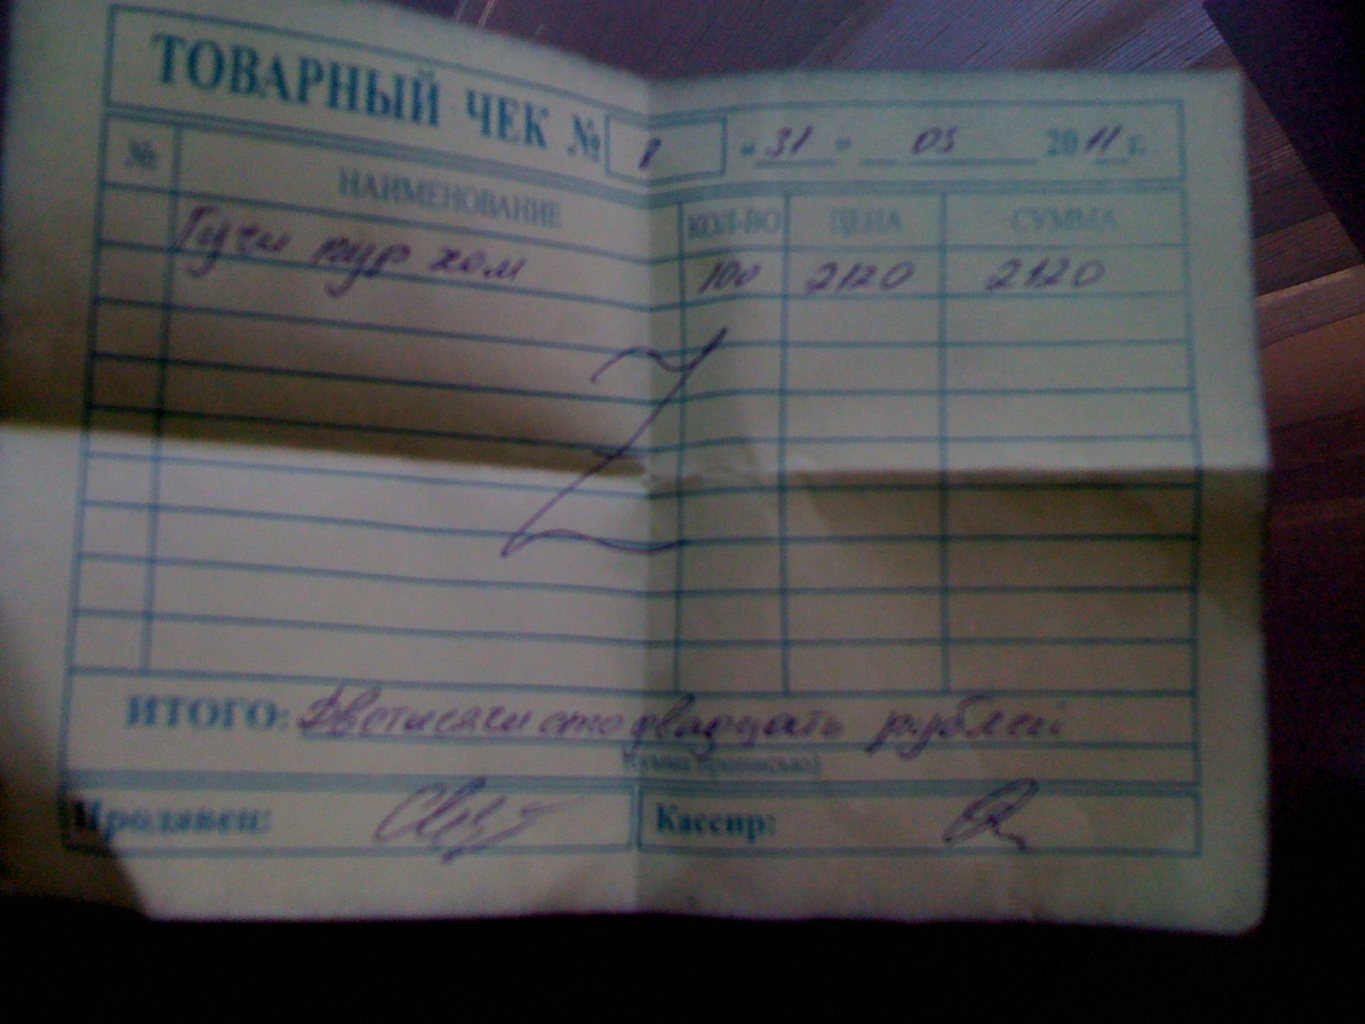 ТОВАРНЫЙ ЧЕК № 1 "31" 05 2011 г.
№ НАИМЕНОВАНИЕ КОЛ-ВО ЦЕНА СУММА
Гучи пур хом 100 2120 2120
ИТОГО: Две тисячи сто двадцать рублей
(сумма прописью)
Продавец: Кассир: